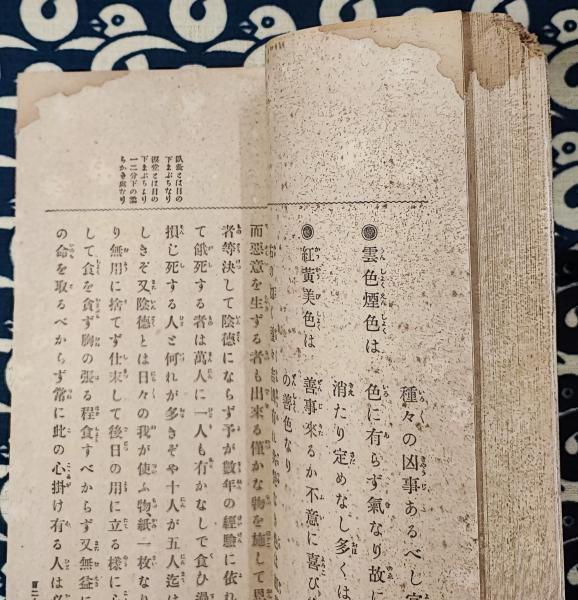 種々の凶事あるべし
◉雲色煙色は 色に有らず氣なり故に
消たり定めなし多くは
◉紅黃美色は 善事來るか不意に喜び
の善色なり
臥蠶とは目の
下まぶちなり
淚堂とは目の
下まぶちより
一二分下の
ちかき處なり
而惡意を生ずる者も出來る僅かな物を施して恩
者等決して陰德にならず予が數年の經驗に依れ
て餓死する者は萬人に一人も有かなしで食ひ過
損じ死する人と何れが多きぞや十人が五人迄は
しきぞ又陰德とは日々の我が使ふ物、紙一枚なり
り無用に捨てず仕末して後日の用に立る樣に心
して食を貪ず胸の張る程食すべからず又無益に
の命を取るべからず常に此の心掛け有る人は
百二